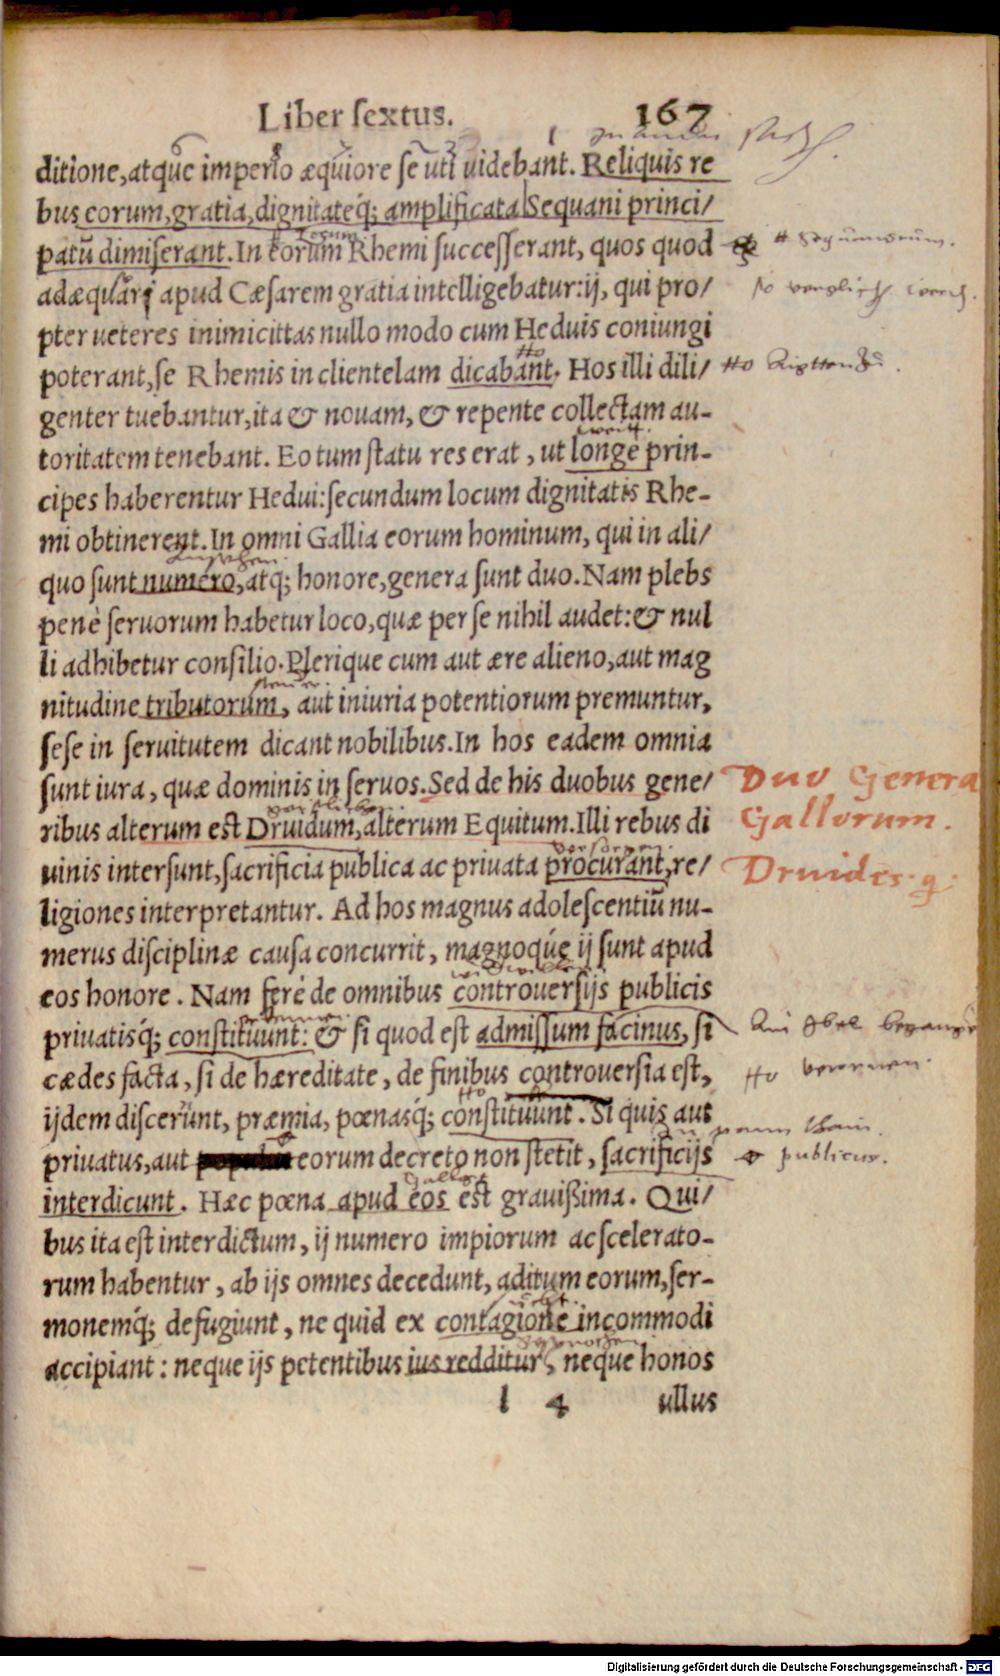 Liber ſextus. 167
ditione, atque imperio æquiore ſe uti uidebant. Reliquis re
bus eorum, gratia, dignitateq́; amplificata Sequani princi/
patũ dimiſerant. In eorum Rhemi ſucceſſerant, quos quod
adæquari apud Cæſarem gratia intelligebatur: ij, qui pro/
pter ueteres inimicitias nullo modo cum Heduis coniungi
poterant, ſe Rhemis in clientelam dicabant. Hos illi dili/
genter tuebantur, ita & nouam, & repente collectam au-
toritatem tenebant. Eo tum ſtatu res erat, ut longè prin-
cipes haberentur Hedui: ſecundum locum dignitatis Rhe-
mi obtinerent. In omni Gallia eorum hominum, qui in ali/
quo ſunt numero, atq; honore, genera ſunt duo. Nam plebs
penè ſeruorum habetur loco, quæ per ſe nihil audet: & nul
li adhibetur conſilio. Plerique cum aut ære alieno, aut mag
nitudine tributorum, aut iniuria potentiorum premuntur,
ſeſe in ſeruitutem dicant nobilibus. In hos eadem omnia
ſunt iura, quæ dominis in ſeruos. Sed de his duobus gene/
Duo Genera
ribus alterum eſt Druidum, alterum Equitum. Illi rebus di
Gallorum.
uinis interſunt, ſacrificia publica ac priuata procurant, re/
Druides.
ligiones interpretantur. Ad hos magnus adoleſcentiũ nu-
merus diſciplinæ cauſa concurrit, magnoq́ue ij ſunt apud
eos honore. Nam ferè de omnibus controuerſijs publicis
priuatisq́; conſtituunt: & ſi quod eſt admiſſum facinus, ſi
cædes facta, ſi de hæreditate, de finibus controuerſia eſt,
ijdem diſcernunt, præmia, pœnasq́; conſtituunt. Si quis aut
priuatus, aut eorum decreto non ſtetit, ſacrificijs
publicus.
interdicunt. Hæc pœna apud eos eſt grauißima. Qui/
bus ita eſt interdictum, ij numero impiorum ac ſcelerato-
rum habentur, ab ijs omnes decedunt, aditum eorum, ſer-
monemq́; defugiunt, ne quid ex contagione incommodi
accipiant: neque ijs petentibus ius redditur, neque honos
l 4 ullus
Digitalisierung gefördert durch die Deutsche Forschungsgemeinschaft - DFG